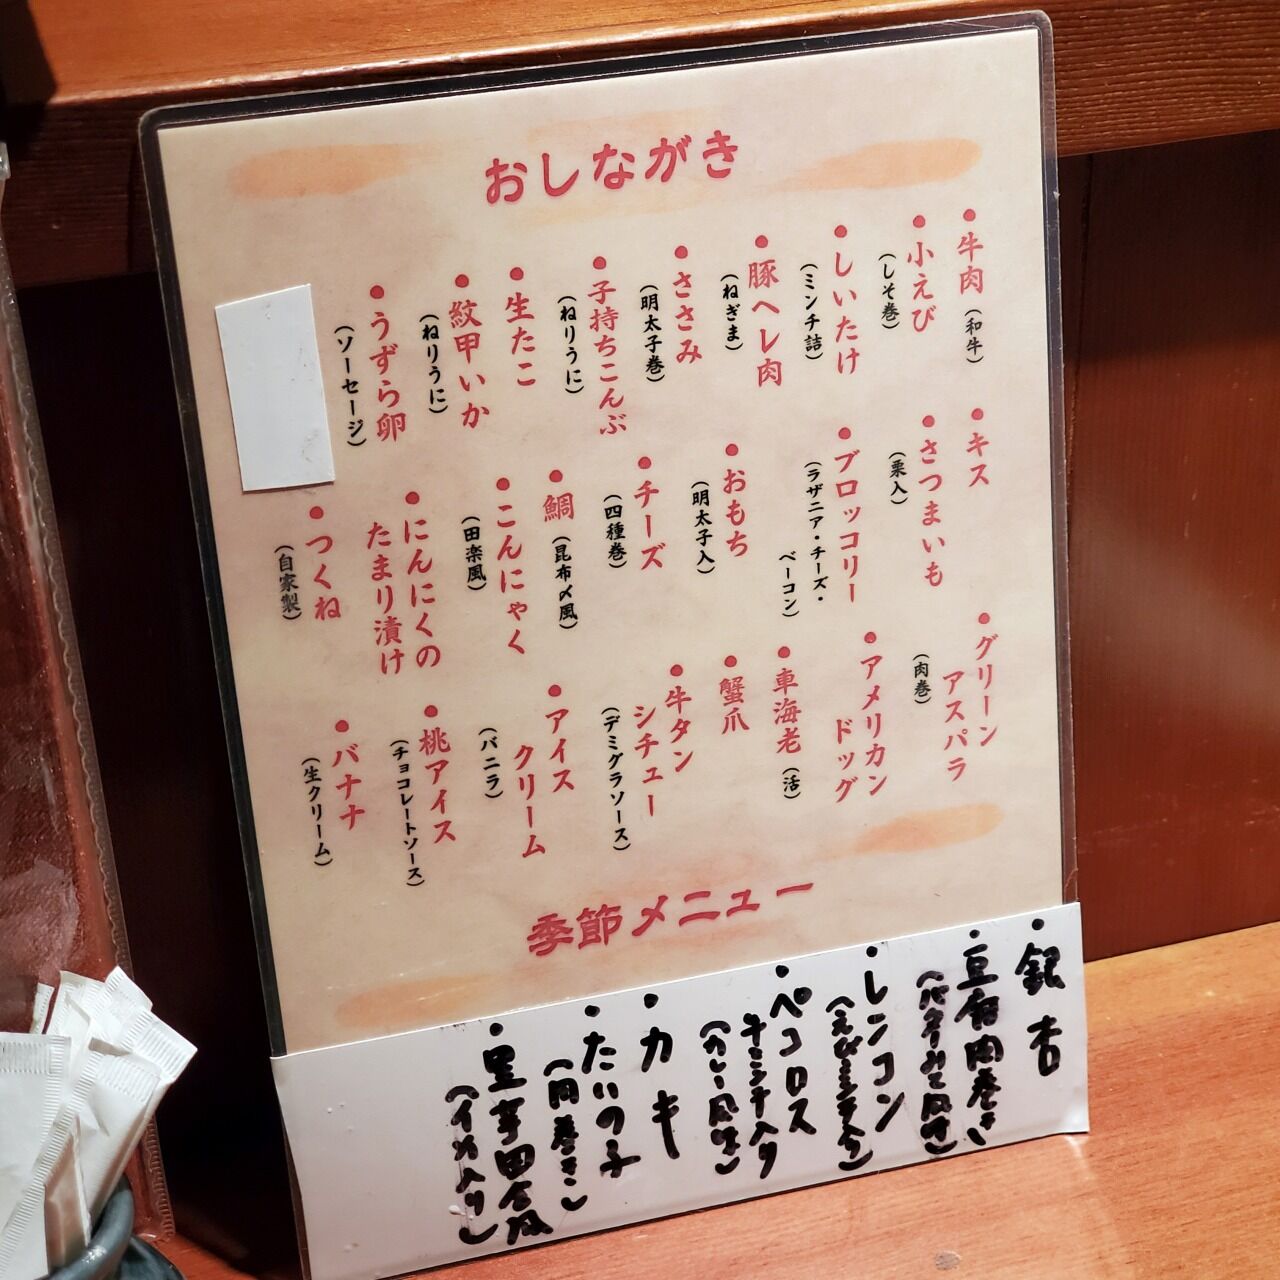 おしながき
・牛肉(和牛)
・小えび
(しそ巻)
・しいたけ
(ミンチ詰)
・豚ヘレ肉
(ねぎま)
・ささみ
(明太子巻)
・子持ちこんぶ
(ねりうに)
・生たこ
・紋甲いか
(ねりうに)
・うずら卵
(ソーセージ)
・キス
・さつまいも
(栗入)
・ブロッコリー
(ラザニア・チーズ・
ベーコン)
・おもち
(明太子入)
・チーズ
(四種巻)
・鯛(昆布〆風)
・こんにゃく
(田楽風)
・にんにくの
たまり漬け
・つくね
(自家製)
・グリーン
アスパラ
(肉巻)
・アメリカン
ドッグ
・車海老(活)
・蟹爪
・牛タン
シチュー
(デミグラソース)
・アイス
クリーム
(バニラ)
・桃アイス
(チョコレートソース)
・バナナ
(生クリーム)
季節メニュー
・銀杏
・豆腐肉巻き
(バターみそ風味)
・レンコン
(えびミンチ入り)
・ペコロス
牛ミンチ入り
(カレー風味)
・カキ
・たいの子
・里芋田舎風
(イカ入り)